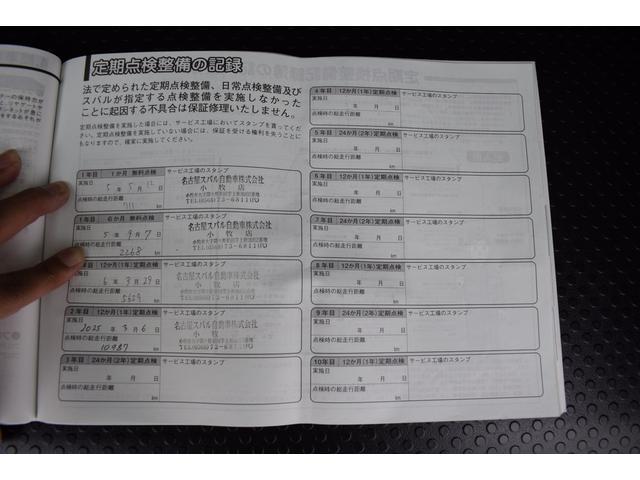 定期点検整備の記録
法で定められた定期点検整備、日常点検整備及び
スバルが指定する点検整備を実施しなかった
ことに起因する不具合は保証修理いたしません。
定期点検整備を実施した場合には、サービス工場においてスタンプを貰ってください。
定期点検整備を実施していない場合には、保証を受ける権利を失うことに
もなりますので、確実に実施してください。
1年目 1か月 無料点検 サービス工場のスタンプ
実施日
5年5月12日
点検時の総走行距離
711 km
名古屋スバル自動車株式会社
小牧店
1年目 6か月 無料点検 サービス工場のスタンプ
実施日
5年9月7日
点検時の総走行距離
2268 km
名古屋スバル自動車株式会社
小牧店
年目 12か月(1年)定期点検 サービス工場のスタンプ
実施日
6年3月29日
点検時の総走行距離
km
名古屋スバル自動車株式会社
小牧店
2年目 12か月(1年)定期点検 サービス工場のスタンプ
実施日
2025年3月6日
点検時の総走行距離
10987 km
名古屋スバル自動車株式会社
小牧店
3年目 24か月(2年)定期点検 サービス工場のスタンプ
実施日
年 月 日
点検時の総走行距離
km
4年目 12か月(1年)定期点検 サービス工場のスタンプ
実施日
年 月 日
点検時の総走行距離
km
5年目 24か月(2年)定期点検 サービス工場のスタンプ
実施日
年 月 日
点検時の総走行距離
km
6年目 12か月(1年)定期点検 サービス工場のスタンプ
実施日
年 月 日
点検時の総走行距離
km
7年目 24か月(2年)定期点検 サービス工場のスタンプ
実施日
年 月 日
点検時の総走行距離
km
8年目 12か月(1年)定期点検 サービス工場のスタンプ
実施日
年 月 日
点検時の総走行距離
km
9年目 24か月(2年)定期点検 サービス工場のスタンプ
実施日
年 月 日
点検時の総走行距離
km
10年目 12か月(1年)定期点検 サービス工場のスタンプ
実施日
年 月 日
点検時の総走行距離
km